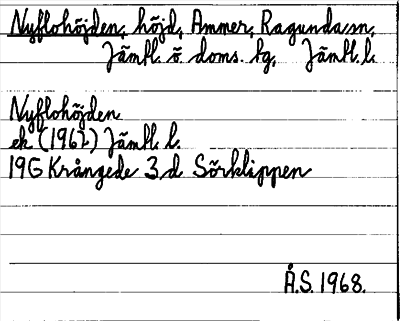 Nyflohöjden, höjd, Ammer, Ragunda sn,
Jämtl. ö. doms. tg, Jämtl. l.
Nyflohöjden
ek (1962) Jämtl. l.
19G Krångede 3 d Sörklippen
Å.S. 1968.